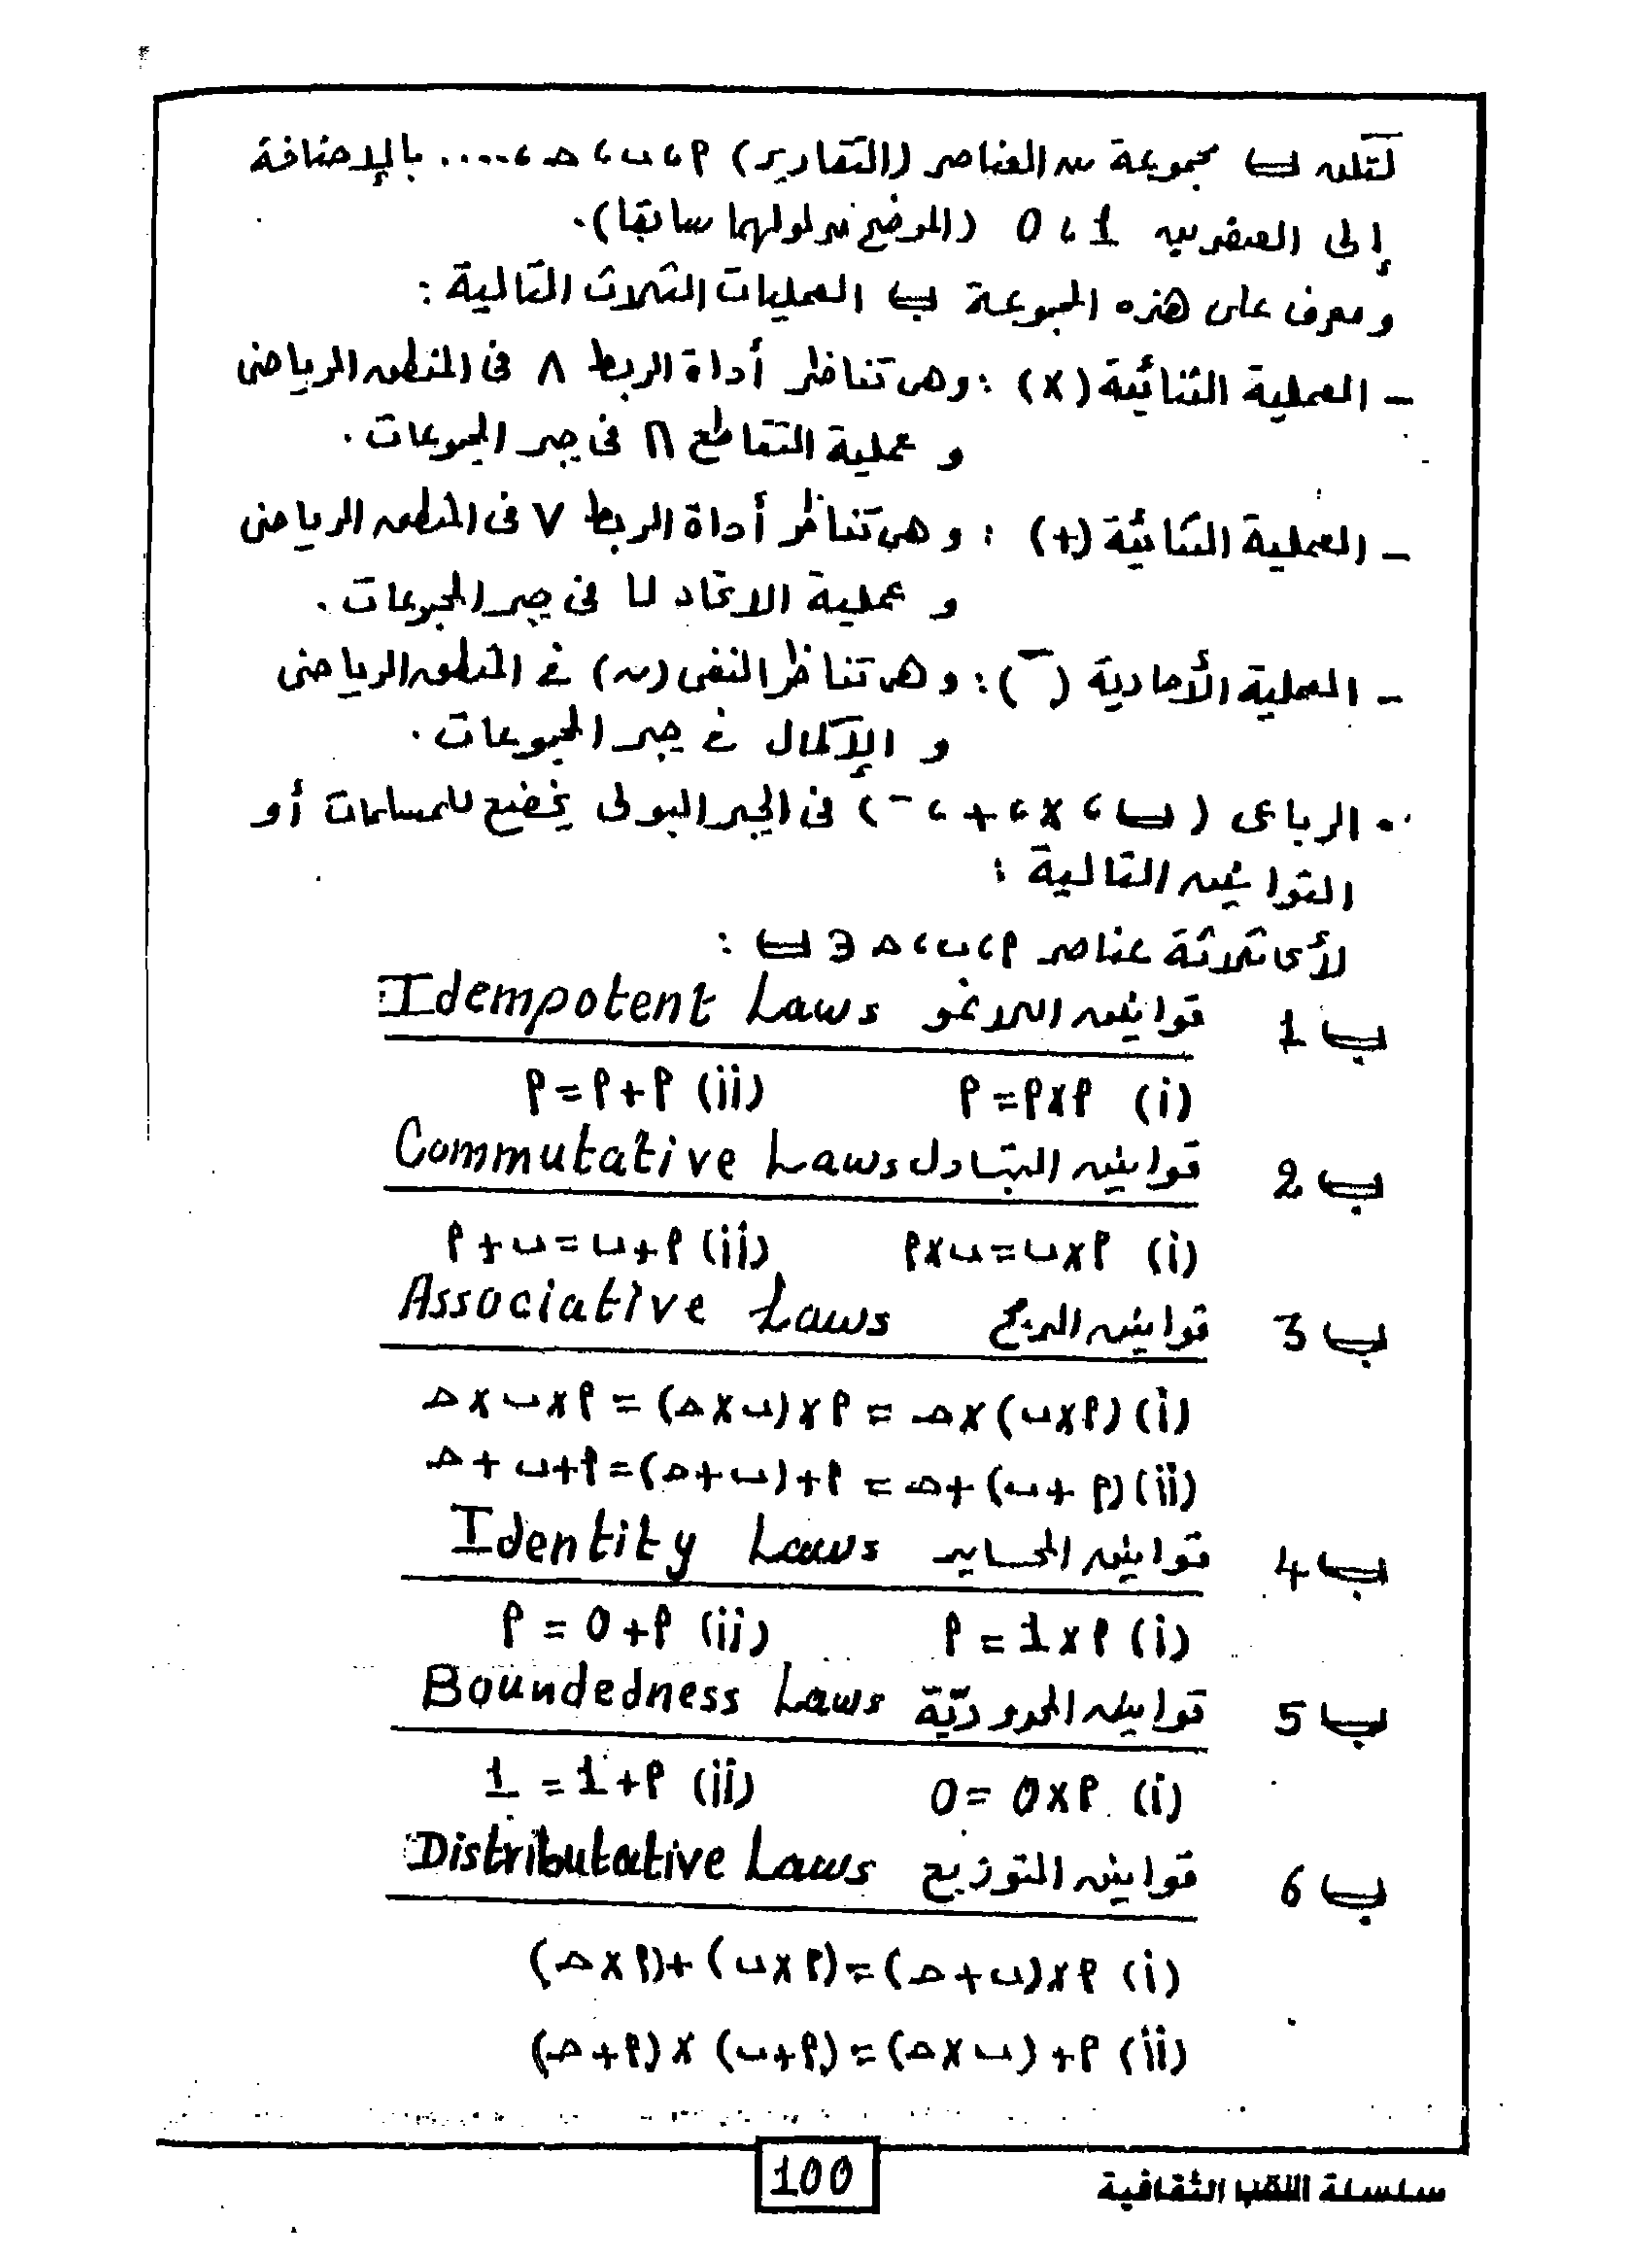 لتكن ب مجموعة من العناصر (التقارير) م، ں، ھ، .... بالإضافة
إلى العنصرين 1، 0 (الموضح مدلولهما سابقا).
ومعرف على هذه المجموعة ب العمليات الثلاث التالية:
- العملية الثنائية (×): وهى تناظر أداة الربط ∧ فى المنطق الرياضى
و عملية التقاطع ∩ فى جبر المجموعات.
- العملية الثنائية (+): وهى تناظر أداة الربط ∨ فى المنطق الرياضى
و عملية الاتحاد ∪ فى جبر المجموعات.
- العملية الأحادية (‾): وهى تناظر النفى (~) فى المنطق الرياضى
و الإكمال فى جبر المجموعات.
∴ الرباعى (ب، ×، +، ‾) فى الجبر البولى يخضع للمسلمات أو
القوانين التالية:
لأى ثلاثة عناصر م، ں، ھ ∈ ب:
ب1 قوانين اللانمو Idempotent Laws
(i) م×م=م (ii) م+م=م
ب2 قوانين التبادل Commutative Laws
(i) م×ں=ں×م (ii) م+ں=ں+م
ب3 قوانين الدمج Associative Laws
(i) (م×ں)×ھ = م×(ں×ھ) = م×ں×ھ
(ii) (م+ں)+ھ = م+(ں+ھ)=م+ں+ھ
ب4 قوانين المحايد Identity Laws
(i) م×1 = م (ii) م+0 = م
ب5 قوانين المحدوديّة Boundedness Laws
(i) م×0 = 0 (ii) م+1 = 1
ب6 قوانين التوزيع Distributative Laws
(i) م×(ں+ھ)=(م×ں)+(م×ھ)
(ii) م+(ں×ھ)=(م+ں)×(م+ھ)
100
سلسلة اللقب الثقافية